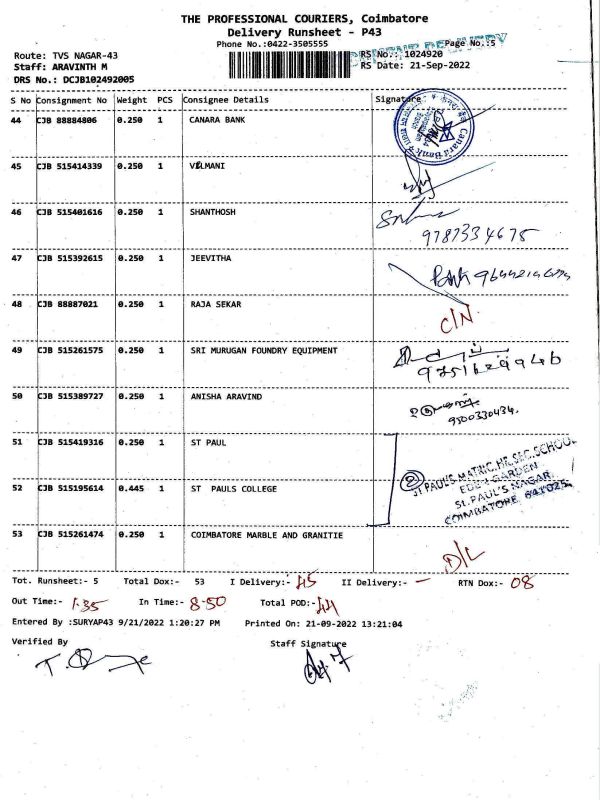 THE PROFESSIONAL COURIERS, Coimbatore
Delivery Runsheet - P43
Phone No.:0422-3505555 Page No.:5
Route: TVS NAGAR-43 RS No.: 1024920
Staff: ARAVINTH M RS Date: 21-Sep-2022
DRS No.: DCJB102492005
S No Consignment No Weight PCS Consignee Details Signature
44 CJB 88884806 0.250 1 CANARA BANK
45 CJB 515414339 0.250 1 VELMANI
46 CJB 515401616 0.250 1 SHANTHOSH
9787334675
47 CJB 515392615 0.250 1 JEEVITHA
48 CJB 88887021 0.250 1 RAJA SEKAR C/N
49 CJB 515261575 0.250 1 SRI MURUGAN FOUNDRY EQUIPMENT
50 CJB 515389727 0.250 1 ANISHA ARAVIND
9500330434.
51 CJB 515419316 0.250 1 ST PAUL
52 CJB 515195614 0.445 1 ST PAULS COLLEGE
2 ST PAUL'S MATRIC. HR. SEC. SCHOOL
EDEN GARDEN
ST. PAUL'S NAGAR,
COIMBATORE 641025.
53 CJB 515261474 0.250 1 COIMBATORE MARBLE AND GRANITIE D/L
Tot. Runsheet:- 5 Total Dox:- 53 I Delivery:- 45 II Delivery:- — RTN Dox:- 08
Out Time:- 1.35 In Time:- 8-50 Total POD:- 44
Entered By :SURYAP43 9/21/2022 1:20:27 PM Printed On: 21-09-2022 13:21:04
Verified By Staff Signature